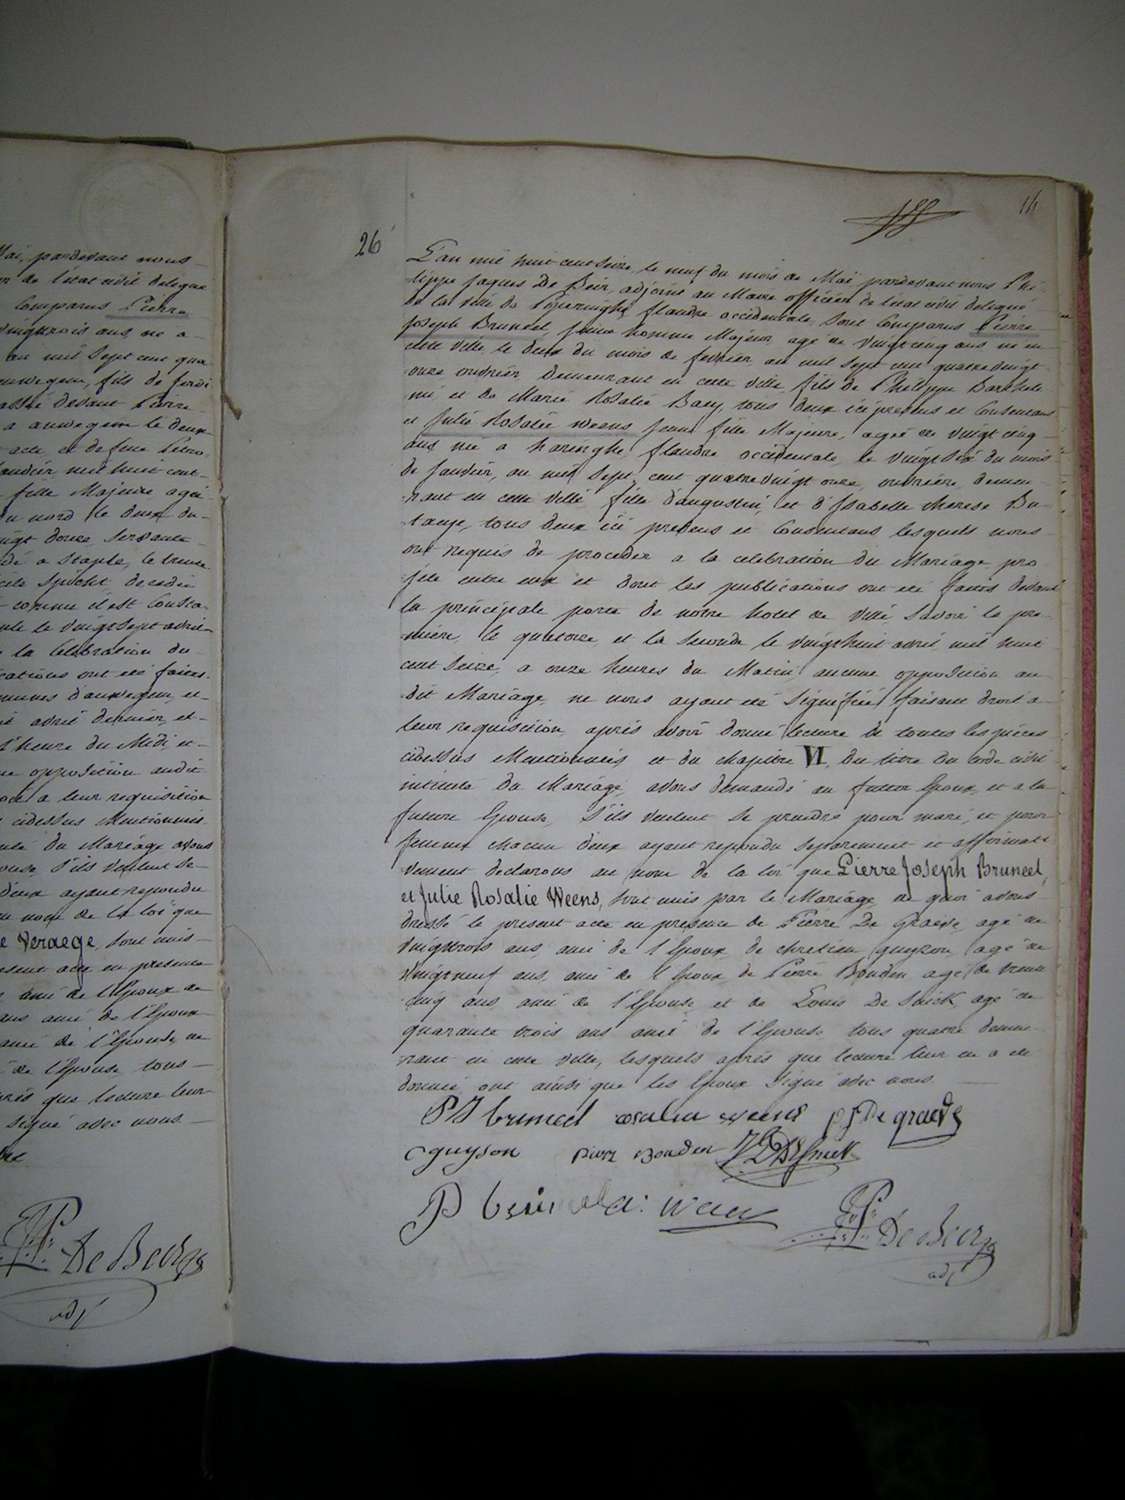 Mai, pardevant nous
de l'état civil delegué
Comparus Pierre
vingttrois ans, né a
an mil sept cent qua
fils de ferdi
devant Pierre
a auwegem le deux
acte, et de feue Petro
mil huit cent
fille Majeure agée
du nord le deux du
vingt douze servante
dé a Staple, le trente
decedé
comme il est Consta
le vingtsept avril
a la Celebration du
cations ont eté faites
d'auwegem, et
avril dernier, et
l'heure du Midi et
opposition audit
a leur requisition
cidessus Mentionnés
du Mariage avons
s'ils veulent se
d'eux ayant repondu
au nom de la loi que
Veraege, sont unis
present acte en presence
ami de l'Epoux de
ans ami de l'Epoux
ami de l'Epouse de
de l'Epouse tous
après que lecture leur
signé avec nous
De Beir
adj
14
26
L'an mil huit cent seize, le neuf du mois de Mai pardevant nous Phi-
lippe Jaques De Beir, adjoint au Maire officier de l'etat civil delegué
de la ville de Poperinghe flandre occidentale, sont Comparus Pierre
Joseph Bruneel jeune homme Majeur agé de vingtcinq ans né en
cette ville, le deux du mois de fevrier an mil sept cent quatrevingt
onze ouvrier demeurant en cette ville fils de Philippe Barthele
mi et de Marie Rosalie Baey tous deux ici presens et Consentans
et Julie Rosalie Weens jeune fille Majeure, agée de vingt cinq
ans née a haringhe flandre occidentale, le vingtsix du mois
de Janvier, an mil sept cent quatrevingt onze, ouvriere demeu-
rant en cette ville fille d'augustin, et d'Isabelle therese Du-
taye, tous deux ici presens et Consentans lesquels nous
ont requis de proceder a la celebration du Mariage pro
jeté entre eux et dont les publications ont eté faites devant
la principale porte de notre hotel de ville savoir la pre-
miere, le quatorze et la seconde le vingthuit avril mil huit
cent seize, a onze heures du Matin aucune opposition au
dit Mariage ne nous ayant eté signifiée faisant droit a
leur requisition, après avoir donné lecture de toutes les pièces
cidessus Mentionnées et du chapitre VI, du titre du Code civil
intitulé du Mariage, avons demandé au futur Epoux et a la
future Epouse, s'ils veulent se prendre pour mari et pour
femme chacun deux ayant repondu separement et affirmati
vement declarons au nom de la loi que Pierre Joseph Bruneel,
et Julie Rosalie Weens, sont unis par le Mariage de quoi avons
dressé le present acte en presence de Pierre De Graeve agé de
vingttrois ans, ami de l'Epoux de chretien guyson agé de
vingtneuf ans, ami de l'Epoux de Pierre Bouden agé de trente
cinq ans, ami de l'Epouse et de Louis De Snick agé de
quarante trois ans ami de l'Epouse tous quatre demeu-
rant en cette ville, lesquels après que lecture leur en a été
donnée ont ainsi que les Epoux signé avec nous.
PJ bruneel rosalia weens p j De graeve
guyson pierre Bouden De Snick
P bruneel a: weens
De Beir
adj